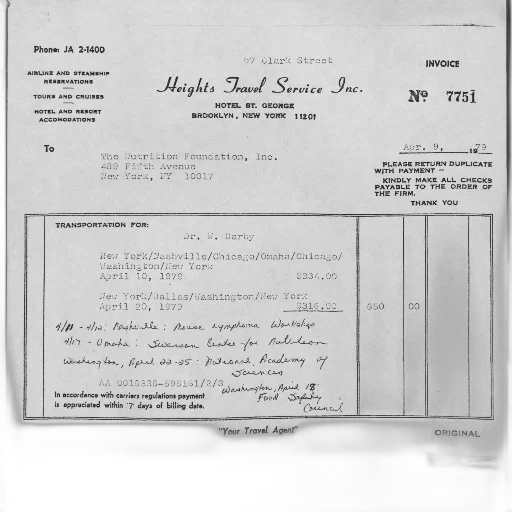 Phone: JA 2-1400
67 Clark Street
INVOICE
AIRLINE AND STEAMSHIP
RESERVATIONS
TOURS AND CRUISES
HOTEL AND RESORT
ACCOMODATIONS
Heights Travel Service Inc.
HOTEL ST. GEORGE
BROOKLYN, NEW YORK 11201
No 7751
To
The Nutrition Foundation, Inc.
489 Fifth Avenue
New York, NY 10017
Apr. 9, 1979
PLEASE RETURN DUPLICATE
WITH PAYMENT –
KINDLY MAKE ALL CHECKS
PAYABLE TO THE ORDER OF
THE FIRM.
THANK YOU
TRANSPORTATION FOR:
Dr. W. Darby
New York/Nashville/Chicago/Omaha/Chicago/
Washington/New York
April 10, 1979 $334.00
New York/Dallas/Washington/New York
April 20, 1979 $316.00 650 00
Nashville: Mouse Lymphoma Workshop
4/17 - Omaha: Swanson Center for Nutrition
Washington, April 22-25: National Academy of
Sciences
Washington, April 18:
Food Safety
Council
In accordance with carriers regulations payment
is appreciated within 7 days of billing date.
"Your Travel Agent"
ORIGINAL